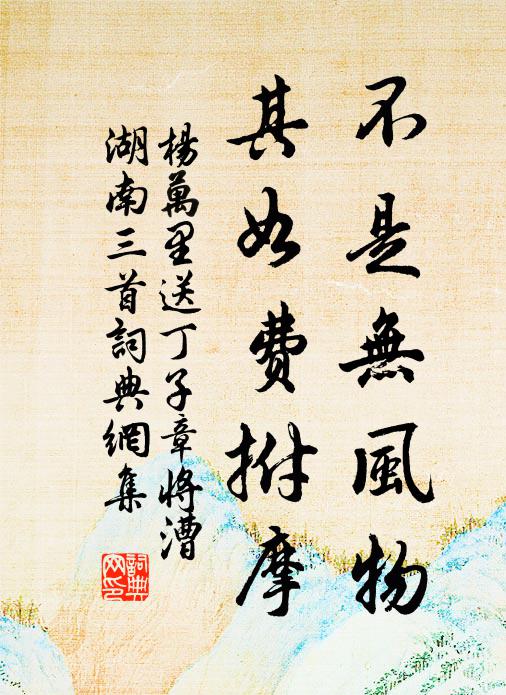 不是無風物
其如費拊摩
楊萬里送丁子章將漕
湖南三首詞典網集
詞典
网印